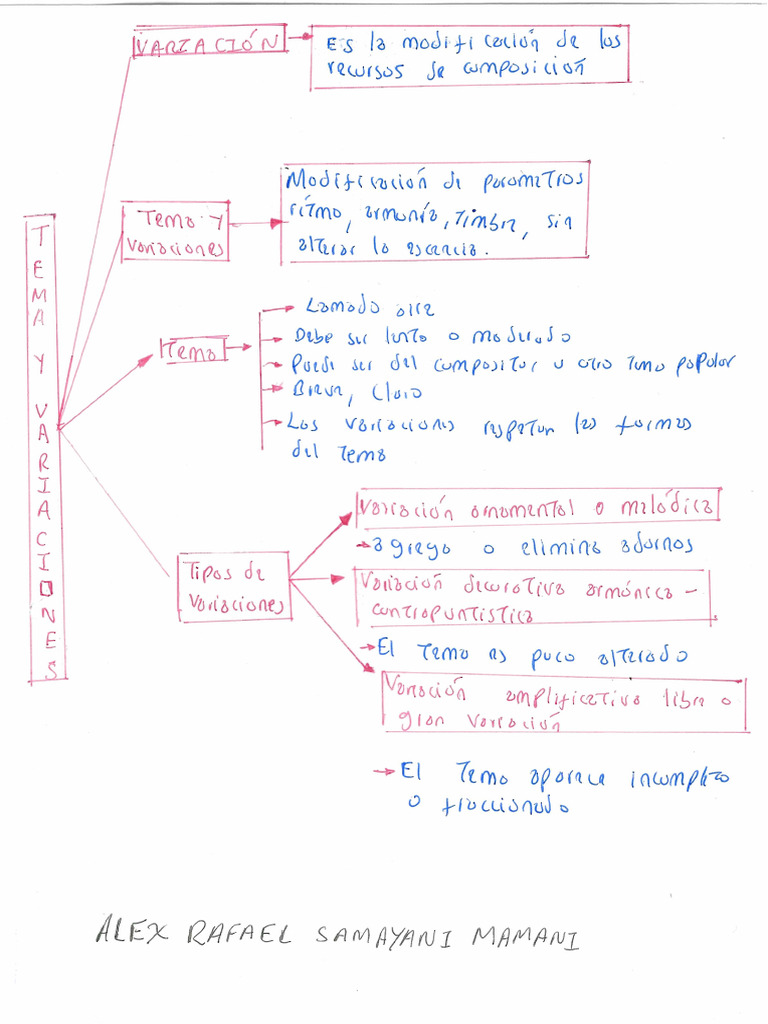 TEMA Y VARIACIONES
VARIACIÓN
Es la modificación de los
recursos de composición
Tema y
variaciones
Modificación de parametros
ritmo, armonía, timbre, sin
alterar la esencia.
Tema
Lamado aire
Debe ser lento o moderado
Puede ser del compositor u otro tema popular
Breve, Claro
Las variaciones respetan las formas
del tema
Tipos de
variaciones
Variación ornamental o melódica
agrega o elimina adornos
Variación decorativa armónica -
contrapuntistica
El tema es poco alterado
Variación amplificativa libre o
gran variación
El tema aparece incompleto
o fraccionado
ALEX RAFAEL SAMAYANI MAMANI